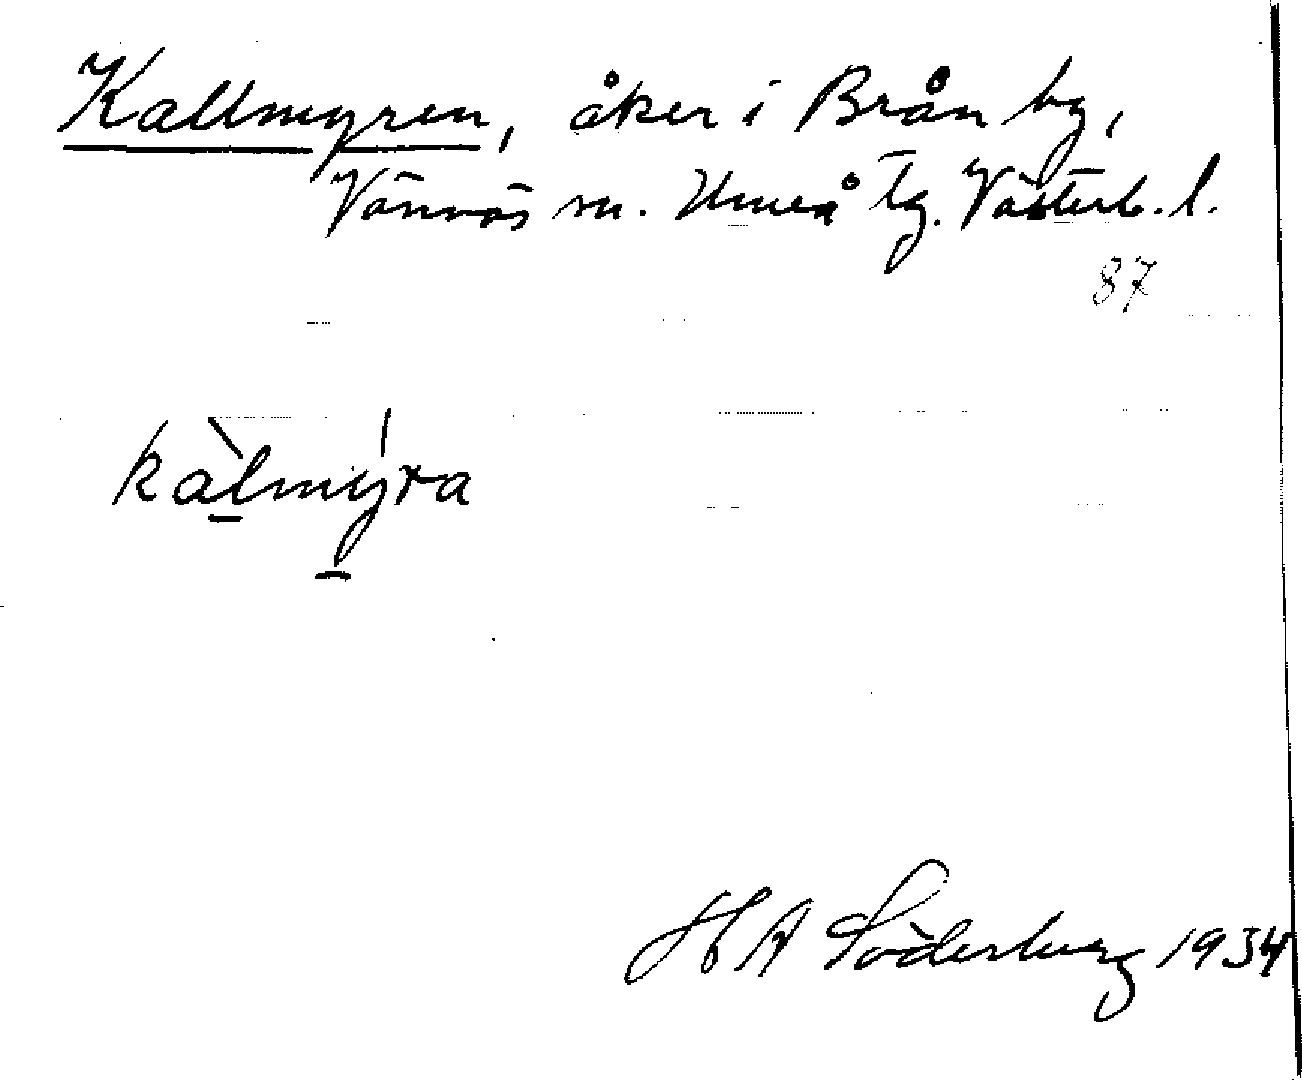 Kallmyren, åker i Brån by,
Vännäs sn. Umeå tg. Västerb. l.
87
kàlmýra
H A Söderberg 1934